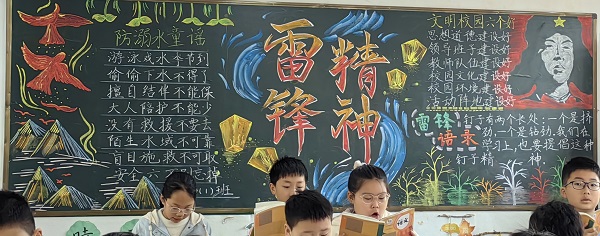 防溺水童谣
游泳戏水季节到
偷偷下水不得了
擅自结伴不能保
大人陪护不能少
没有救援不要去
陌生水域不可靠
盲目施救不可取
安全六
(1)班
雷锋
精神
文明校园六个好
思想道德建设好
领导班子建设好
教师队伍建设好
校园文化建设好
校园环境建设好
活动阵地建设好
雷锋
语录
钉子有两个长处:一个是挤
劲,一个是钻劲,我们在
学习上,也要提倡这种
钉子精神.